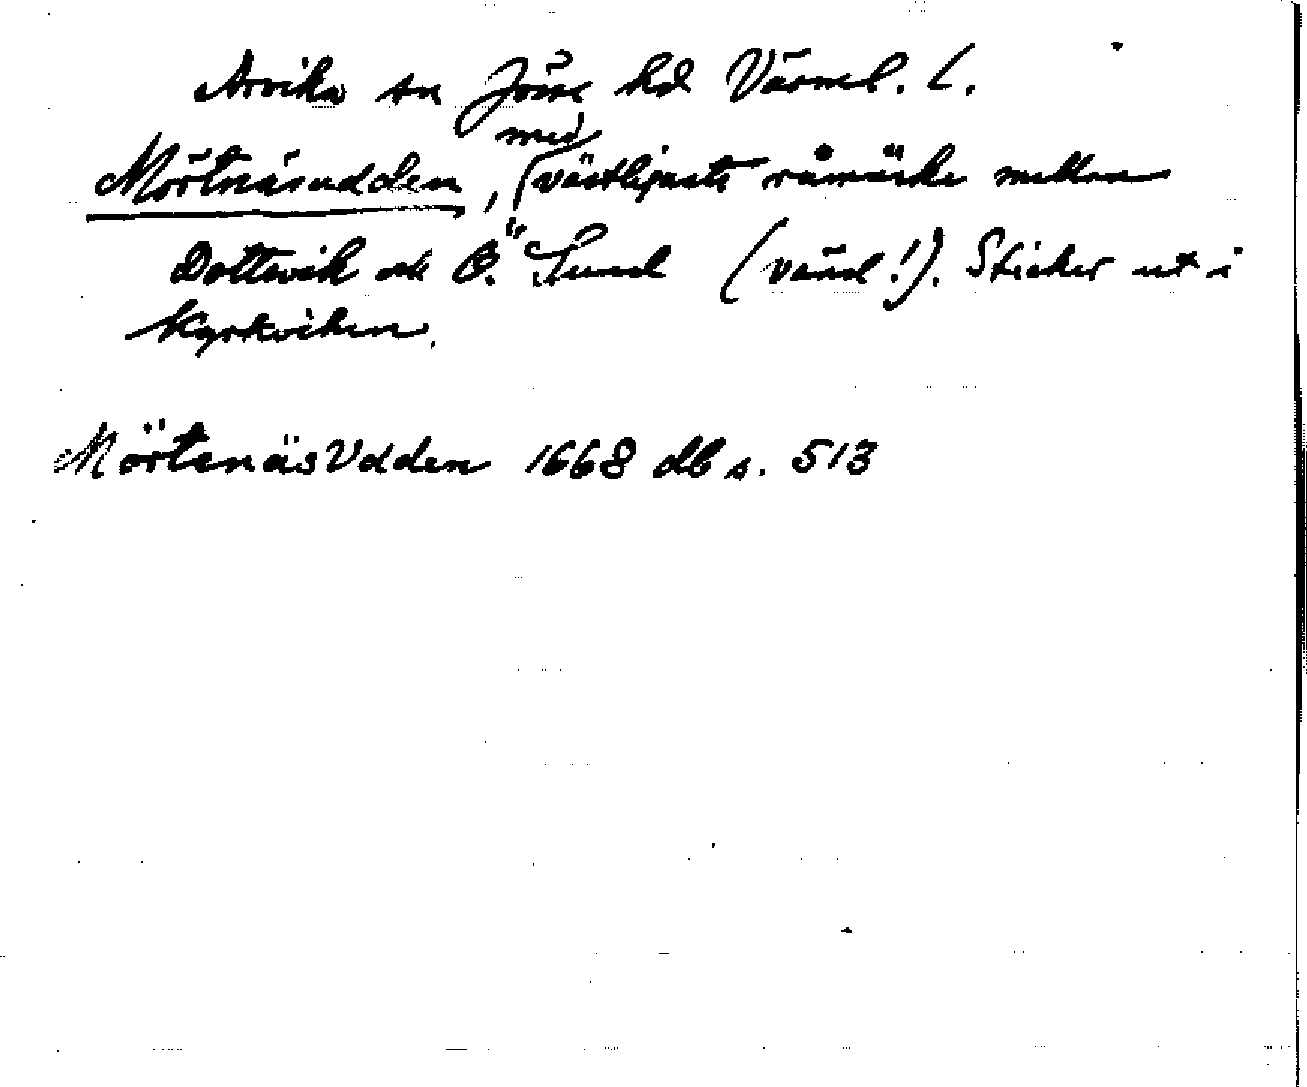 Arvika sn Jösse hd Värml. l.
Mörtnäsudden, med västligaste råmärke mellan
Dottevik ok Ö. Sund (vänd!). Sticker ut i
Kyrkviken.
MörtenäsVdden 1668 db s. 513